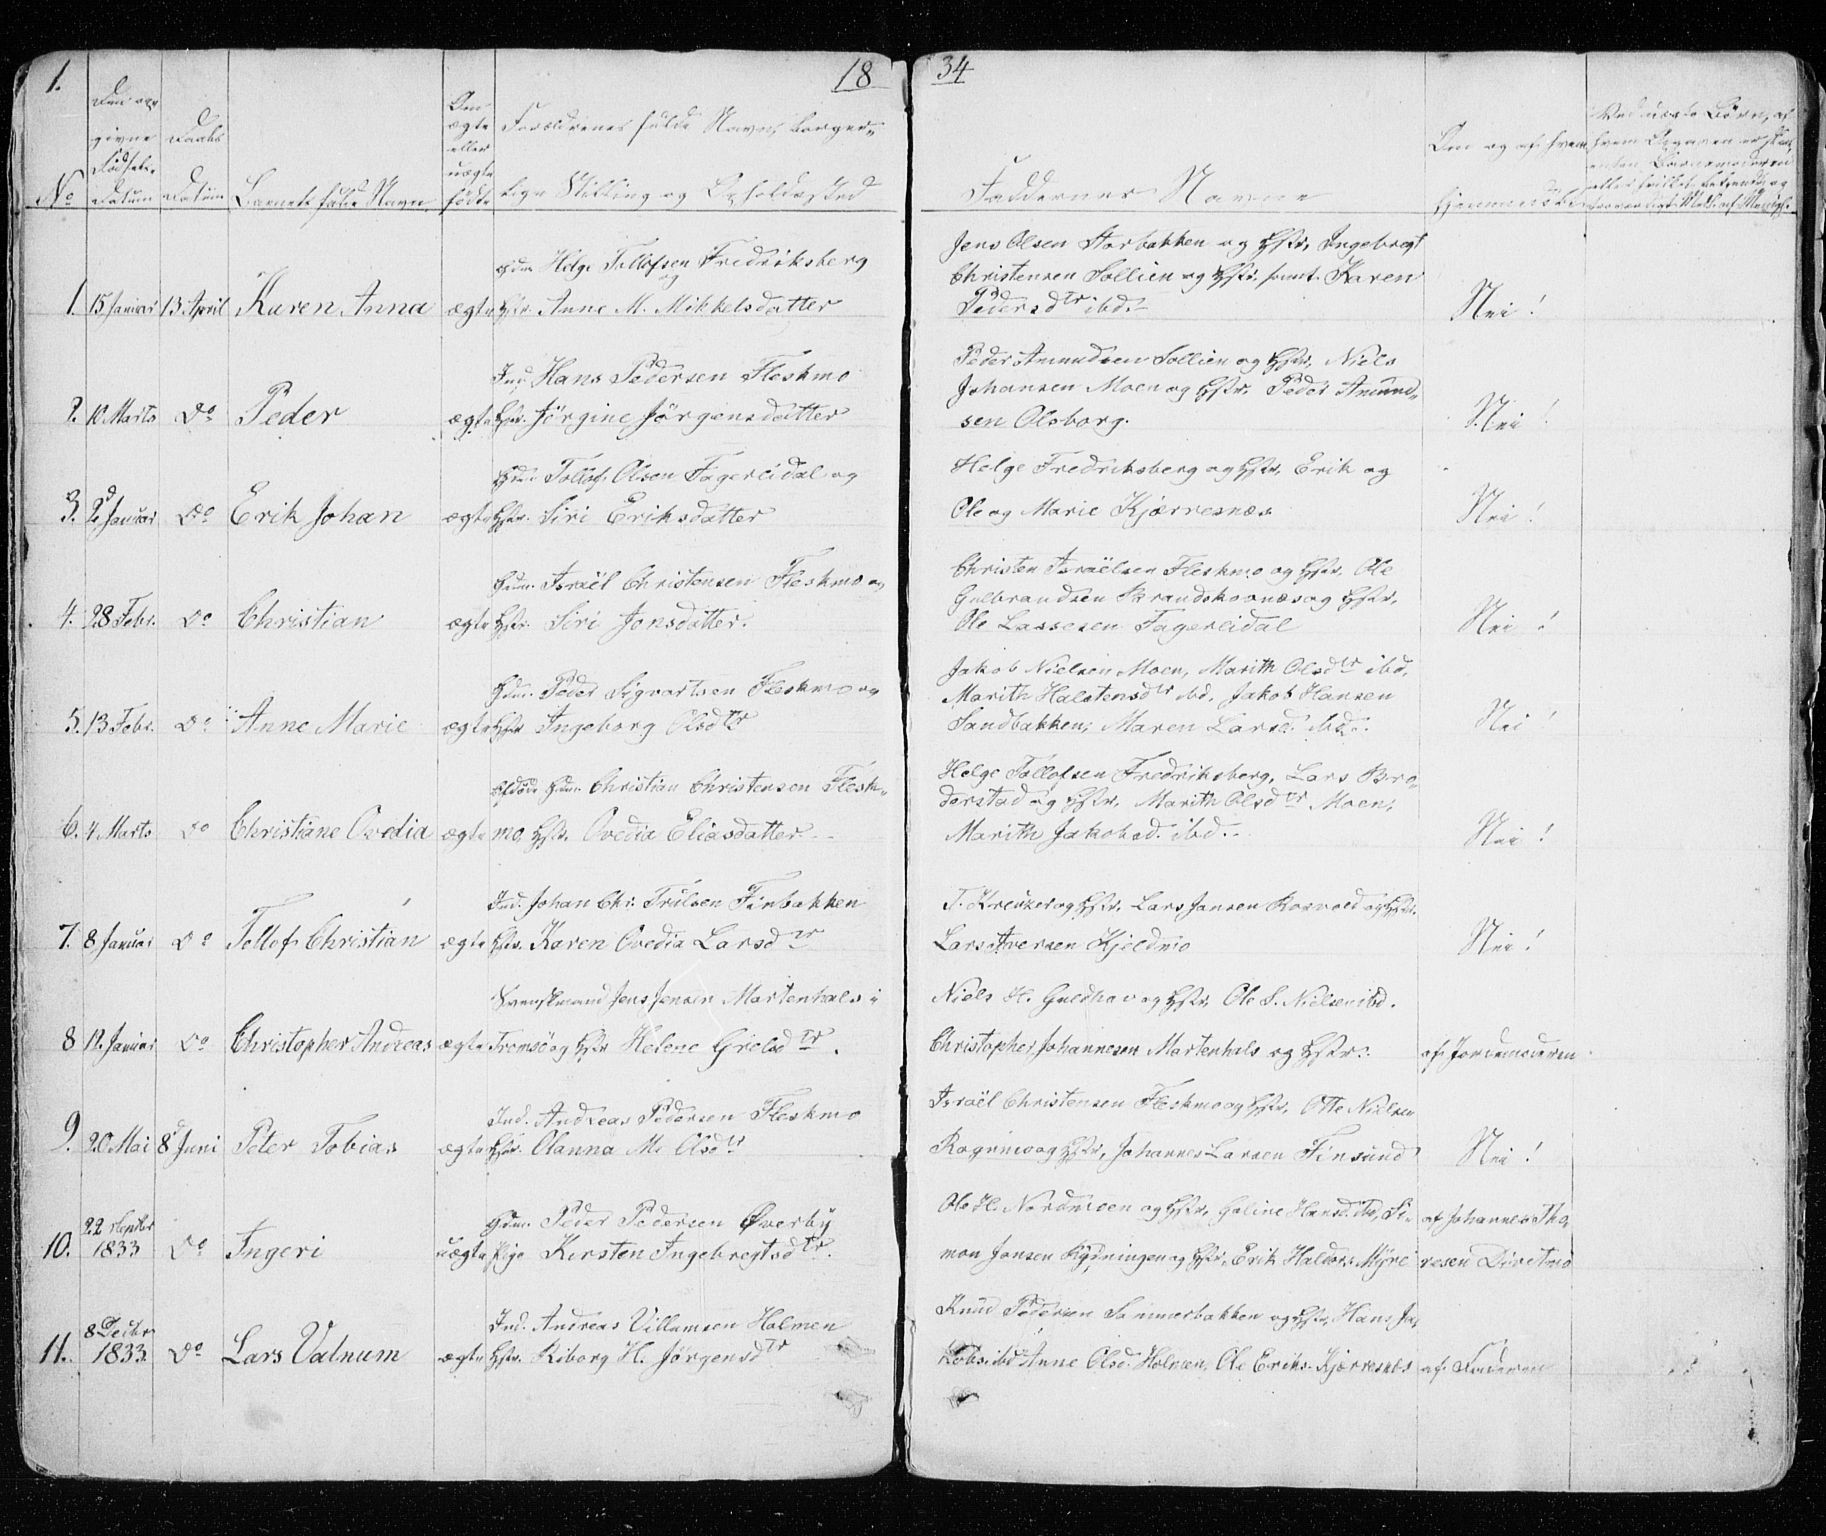 1. 18 34
No
Den opgivne Fødsels Datum
Daabs Datum
Barnets fulde Navn
Om ægte eller uægte fødte
Forældrenes fulde Navn, borgerlige Stilling og Opholdssted
Faddernes Navne
Om og af hvem hjemmedøbt
1. 15 Januar 13 April Karen Anna ægte
Gdm. Helge Tollofsen Fredriksberg og
Hstr. Anne M. Mikkelsdatter
Jens Olsen Storbakken og Hstr. Ingebregt
Christensen Sollien og Hstr. samt Karen
Pedersdtr ibd.
Nei!
2. 10 Marts Do Peder ægte
Ind. Hans Pedersen Fleskmo
Hstr. Jörgine Jörgensdatter
Peder Amundsen Sollien og Hstr. Niels
Johansen Moen og Hstr. Peder Amund-
sen Olsborg.
Nei!
3. 2d Januar Do Erik Johan ægte
Gdm. Tollof Olsen Fagerlidal og
Hstr. Siri Eriksdatter
Helge Fredriksberg og Hstr. Erik og
Ole og Marie Kjærresnæs
Nei!
4. 28 Febr. Do Christian ægte
Gdm. Israël Christensen Fleskmo og
Hstr. Siri Jonsdatter.
Christen Israëlsen Fleskmo og Hstr. Ole
Gulbrandsen Strandskovnæs og Hstr.
Ole Lassesen Fagerlidal
Nei!
5. 13 Febr. Do Anne Marie ægte
Gdm. Peder Sigvartsen Fleskmo og
Hstr. Ingeborg Olsdtr
Jakob Nielsen Moen, Marith Olsdtr ibd.
Marith Halstensdtr ibd. Jakob Hansen
Sandbakken, Maren Larsd. ibd.
Nei!
6. 4. Marts Do Christiane Ovedia ægte
Afdøde Gdm. Christian Christensen Flesk-
mo, Hstr. Ovedia Eliasdatter
Helge Tollofsen Fredriksberg, Lars Bro-
derstad og Hstr. Marith Olsdtr Moen,
Marith Jakobsd. ibd.
Nei!
7. 8 Januar Do Tollof Christian ægte
Ind. Johan Chr. Trulsen Finbakken
Hstr. Karen Ovedia Larsdtr
T. Kreuzer og Hstr. Lars Jansen Rosvold og Hstr.
Lars Iversen Kjeldmo
Nei!
8 12. Januar Do Christopher Andreas ægte
Svenskmand Jens Jensen Martenhals i
Tromsö og Hstr. Helene Grelsdtr.
Niels H. Guldhav og Hstr. Ole S. Nielsen ibd.
Christopher Johannesen Martenhals og Hstr.
af Jordemoderen
9. 20 Mai 8d Juni Peter Tobias ægte
Ind. Andreas Pedersen Fleskmo
Hstr. Olanna M. Olsdtr
Israël Christensen Fleskmo og Hstr. Otte Nielsen
Rognmo og Hstr, Johannes Larsen Finsund
Nei!
10. 22 Septbr 1833 Do Ingeri uægte
Gdm. Peder Pedersen Øverby
Pige Kirsten Ingebregtsdtr.
Ole H. Nordmoen og Hstr. Goline Hansd. ibd, Si-
mon Jonsen Kysningen og Hstr. Erik Haldors. Myre
af Johannes Tho-
resen Divitmo
11. 8 Decbr 1833 Do Lars Valnum ægte
Ind. Andreas Villumsen Holmen
Hstr. Kiborg H. Jörgensdtr
Knud Pedersen Sommerbakken og Hstr, Hans Ja-
kobs. ibd Anne Olsd. Holmen, Ole Eriks. Kjærresnæs
af Faderen